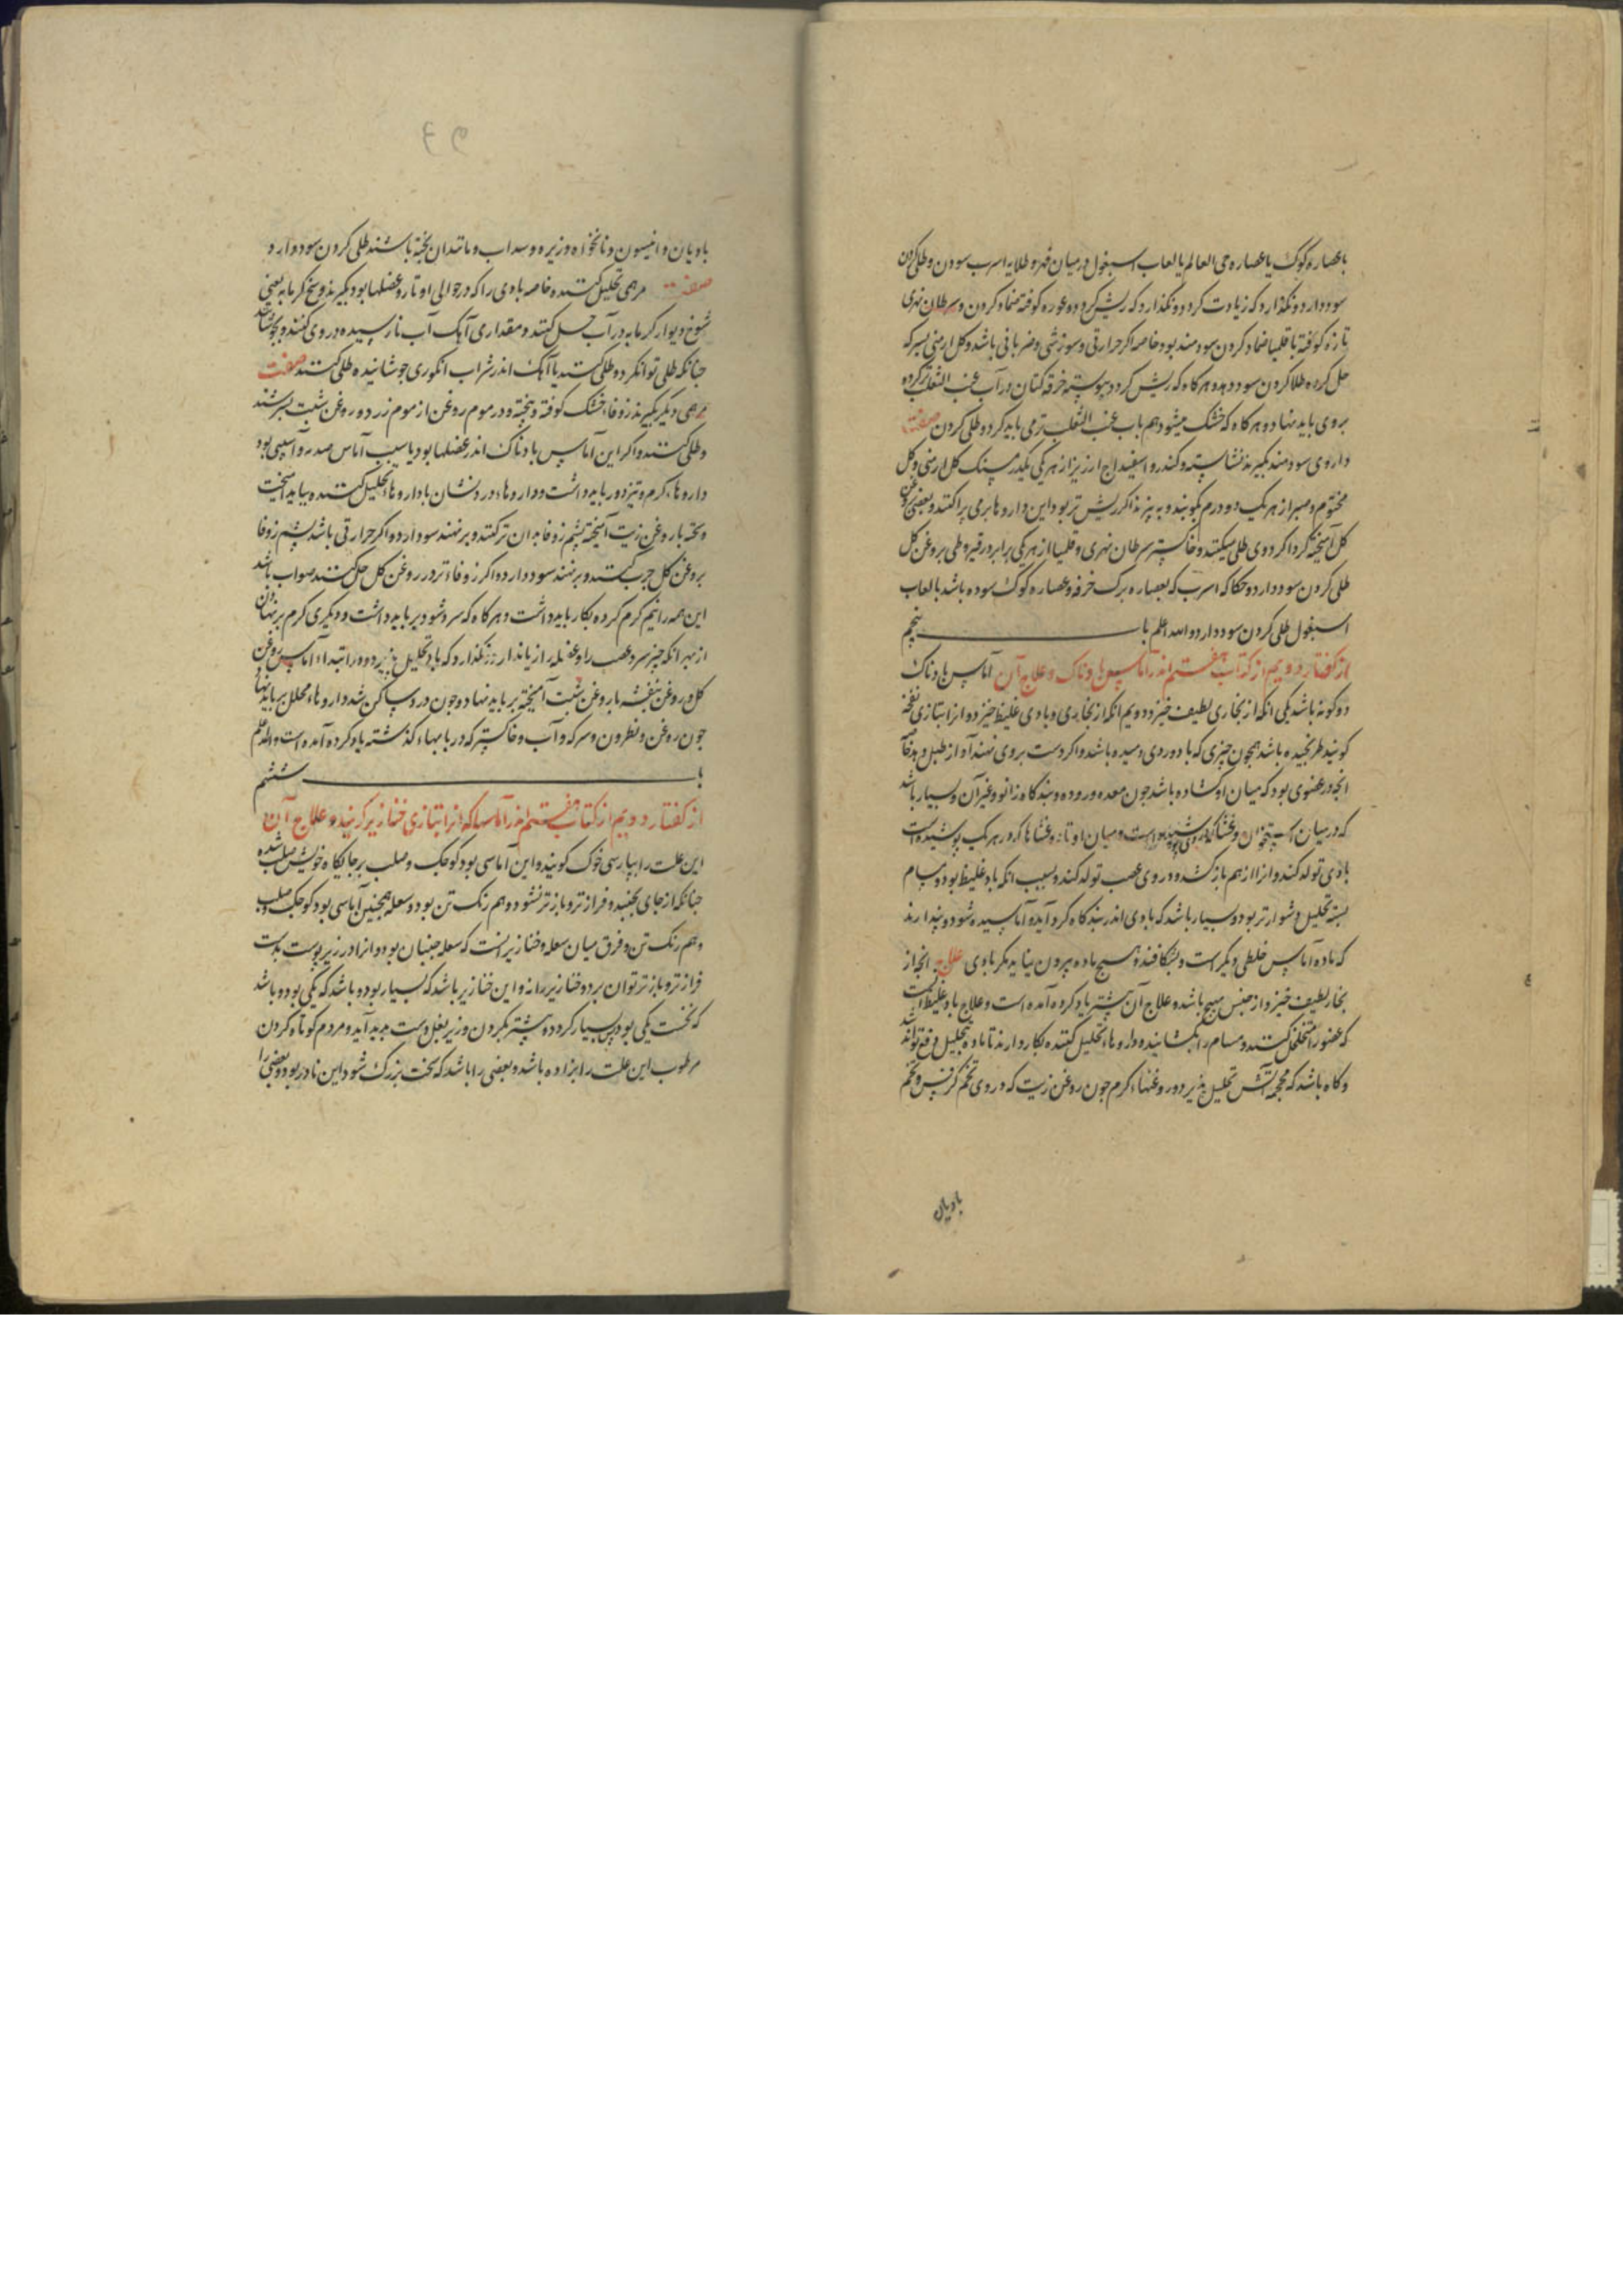 با عصاره کوک یا عصاره حی العالم یا لعاب اسبغول در میان فهر و طلایه اسرب سودن و طلی کردن
سود دارد و نکذارد که زیادت کردد و نکذارد که ریش کردد و غوره کوفته ضماد کردن و سرطان نهری
تازه کوفته با قلیمیا ضماد کردن سودمند بود خاصه اکر حرارتی و سوزشی و ضربانی باشد و کل ارمنی بسرکه
حل کرده طلا کردن سود دهد و هر کاه که ریش کردد پیوسته خرقه کتان در آب عنب الثعلب تر کرده
بروی باید نهاد و هر کاه که خشک میشود هم بآب عنب الثعلب تر می باید کرد و طلی کردن صفت
داروی سودمند بکیرند نشاسته و کندر و اسفیداج ارزیز از هر یکی یکدرمسنک کل ارمنی و کل
مختوم و صبر از هر یک دو درم بکوبند و به پزند اکر ریش تر بود این داروها بر وی پراکنند و بعضی بروغن
کل آمیخته کرداکرد وی طلی میکنند و خاکستر سرطان نهری و قلیمیا از هر یکی برابر در قیروطی بروغن کل
طلی کردن سود دارد و حکاکه اسرب که بعصاره برک خرفه و عصاره کوک سوده باشد با لعاب
اسبغول طلی کردن سود دارد والله اعلم باب پنجم
از کفتار دویم از کتاب هفتم اندر آماسها بادناک و علاج آن آماس بادناک
دو کونه باشد یکی انکه از بخاری لطیف خیزد دویم انکه از بخاری و بادی غلیظ خیزد و انرا بتازی نفخه
کویند طرنجیده باشد همچون چیزی که باد در وی دمیده باشد و اکر دست بر وی نهند آواز طبل دهد خاصه
انچه در عضوی بود که میان او کشاده باشد چون معده و روده و بندکاه زانو و غیر آن و بسیار باشد
که در میان استخوان و غشا که بر وی پوشیده است و میان اوتار و غشاها که در هر یک پوشیده است
بادی تولد کند و انرا از هم باز کشد و در وی عصب تولد کند و بسبب انکه باد غلیظ بود و مسام
بسته تحلیل دشوارتر بود و بسیار باشد که بادی اندر بندکاه کرد آید و آماسیده شود و پندارند
که ماده آماس خلطی دیکر است و بشکافند و هیچ ماده بیرون نیاید مکر بادی علاج انچه از
بخار لطیف خیزد از جنس تهبج باشد و علاج آن پیشتر یاد کرده آمده است و علاج باد غلیظ آنست
که عضو را متخلخل کنند و مسام را بکشایند و داروهاء تحلیل کننده بکار دارند تا باد بتحلیل دفع تواند شد
و کاه باشد که محجمه آتش تحلیل پذیرد و روغنهاء کرم چون روغن زیت که در وی تخم کرفس و تخم
بادیان
بادیان و انیسون و نانخواه و زیره و سداب و مانند آن پخته باشند طلی کردن سود دارد
صفت مرهمی تحلیل کننده خاصه بادی را که در حوالی اوتار و عضلها بود بکیرند وسخ کرمابه یعنی
شوخ دیوار کرمابه در آب حل کنند و مقداری آهک آب نارسیده در وی کنند و بجوشانند
چنانکه طلی توان کرد و طلی کنند یا آهک اندر شراب انکوری جوشانیده طلی کنند صفت
مرهمی دیکر بکیرند زوفاء خشک کوفته و بیخته و در موم روغن از موم زرد و روغن شبت بسرشند
و طلی کنند و اکر این آماس بادناک اندر عضلها بود یا سبب آماس صدمه و آسیبی بود
داروهاء کرم و تیز دور باید داشت و داروهاء درد نشان با داروهاء تحلیل کننده بباید آمیخت
و پخته با روغن زیت آمیخته پشم زوفا بدان تر کنند و بر نهند سود دارد و اکر حرارتی باشد پشم زوفا
بروغن کل چرب کنند و بر نهند سود دارد و اکر زوفاء تر در روغن کل حل کنند صواب باشد
این همه را نیم کرم کرده بکار باید داشت و هر کاه که سرد شود بر باید داشت و دیکری کرم بر نهادن
از بهر انکه چیز سرد عصب را و عضله را زیان دارد و نکذارد که باد تحلیل پذیرد و در ابتداء آماس روغن
کل و روغن بنفشه با روغن شبت آمیخته بر باید نهاد و چون درد ساکن شد داروهاء محلل بر باید نهاد
چون روغن و نطرون و سرکه و آب و خاکستر که در بابهاء کذشته یاد کرده آمده است والله اعلم
باب ششم
از کفتار دویم از کتاب هفتم اندر آماسها که انرا بتازی خنازیر کویند و علاج آن
این علت را بپارسی خوک کویند و این آماسی بود کوچک و صلب بر جایکاه خویش صلب شده
چنانکه از جای نجنبد و فرازتر و بازتر نشود و هم رنک تن بود و سلعه همچنین آماسی بود کوچک و صلب
و هم رنک تن و فرق میان سلعه و خنازیر انست که سلعه جنبان بود و انرا در زیر پوست بدست
فرازتر و بازتر توان برد و خنازیر را نه و این خنازیر باشد که بسیار بود و باشد که یکی بود و باشد
که نخست یکی بود پس بسیار کردد و بیشتر بکردن و زیر بغل دست پدید آید و مردم کوتاه کردن
مرطوب این علت را آماده باشد و بعضی را باشد که سخت بزرک شود این نادر بود و بعضی را